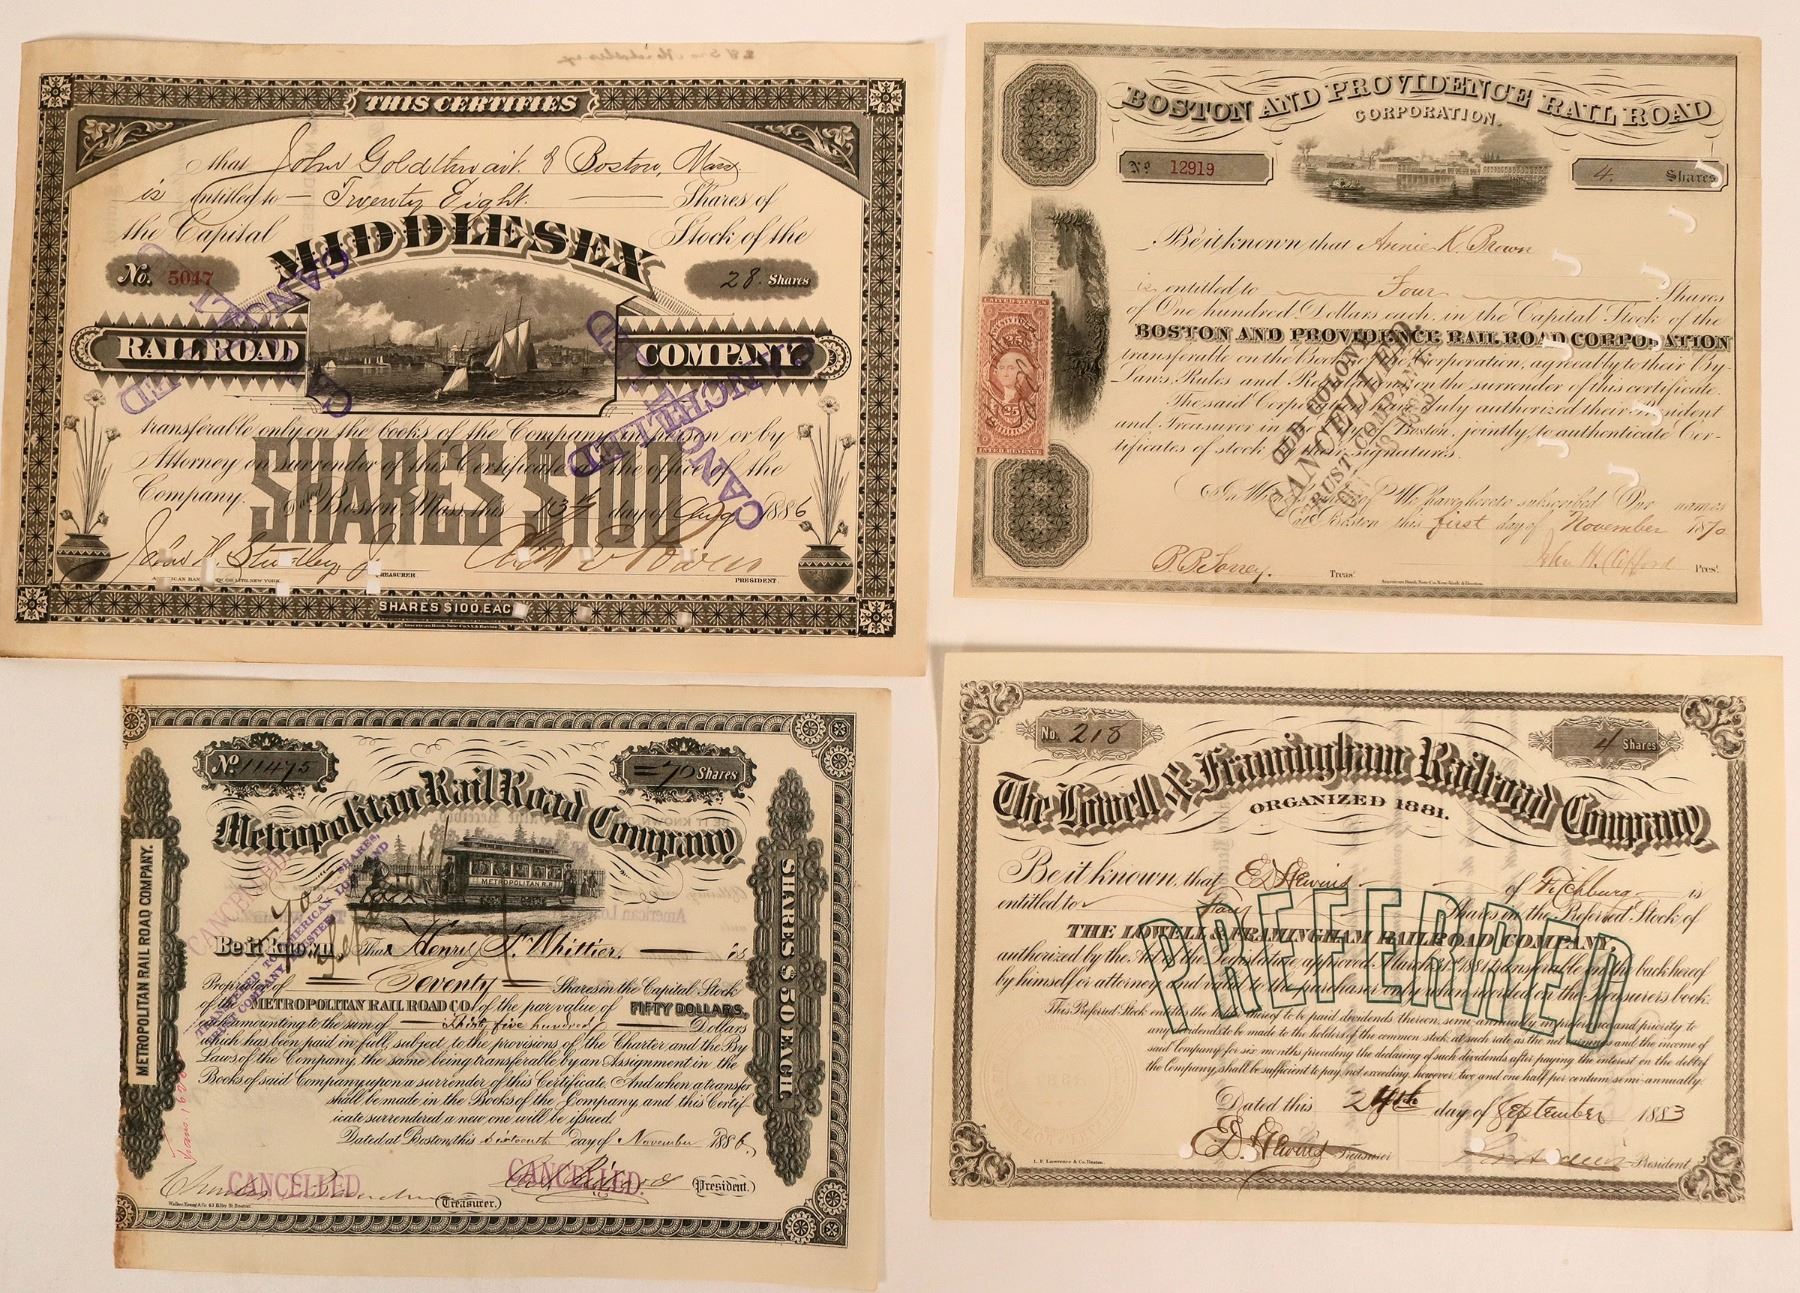 THIS CERTIFIES
that John Goldthwait of Boston, Mass
is entitled to — Twenty Eight. — Shares of
the Capital Stock of the
MIDDLESEX
No. 5047
28. Shares
RAIL ROAD COMPANY.
CANCELLED
CANCELLED
CANCELLED
CANCELLED
transferable only on the books of the Company in person or by
Attorney on surrender of this Certificate at the office of the
Company. Dated Boston, Mass this 13th day of Aug 1886
SHARES $100
John H. Studley Jr.
TREASURER
PRESIDENT
SHARES $100. EACH
BOSTON AND PROVIDENCE RAIL ROAD
CORPORATION.
No. 12919
4. Shares
Be it known that Annie K. Brown
is entitled to Four Shares
of One hundred Dollars each, in the Capital Stock of the
BOSTON AND PROVIDENCE RAIL ROAD CORPORATION
transferable on the Books of the Corporation, agreably to their By-
Laws, Rules and Regulations, on the surrender of this certificate.
The said Corporation have duly authorized their President
and Treasurer in the City of Boston, jointly, to authenticate Cer-
tificates of stock by their signatures.
In Witness whereof We have hereto subscribed Our names
at Boston this first day of November 1870
B. B. Torrey.
Treas.
John H. Clifford
Pres.
American Bank Note Co. New-York & Boston.
UNITED STATES
25
25
INTER. REVENUE
OLD COLONY
CANCELLED
TRUST COMPANY
No. 11475
70 Shares
Metropolitan Rail Road Company
METROPOLITAN R.R.
Be it known That Henry F. Whittier, is
Proprietor of Seventy Shares in the Capital Stock
of the METROPOLITAN RAIL ROAD CO. of the par value of FIFTY DOLLARS,
each amounting to the sum of Thirty five hundred Dollars
which has been paid in full, subject to the provisions of the Charter and the By
Laws of the Company, the same being transferable by an Assignment in the
Books of said Company upon a surrender of this Certificate. And when a transfer
shall be made in the Books of the Company, and this Certif
icate surrendered a new one will be issued.
Dated at Boston, this sixteenth day of November 1886.
METROPOLITAN RAIL ROAD COMPANY.
SHARES $50 EACH
CANCELLED
TRANSFERRED TO AMERICAN LOAN AND
TRUST COMPANY
CANCELLED
CANCELLED.
(Treasurer.)
(President.)
No. 218
4 Shares
The Lowell & Framingham Railroad Company,
ORGANIZED 1881.
Be it known, that E D Hewins of Fitchburg is
entitled to Four Shares in the Preferred Stock of
THE LOWELL & FRAMINGHAM RAILROAD COMPANY,
authorized by the Act of the Legislature approved March 1881 transferable on the back hereof
by himself or attorney and valid to the purchaser only when recorded on the Treasurer's book.
PREFERRED
This Preferred Stock entitles the holder thereof to be paid dividends thereon, semi-annually in preference and priority to
any dividends to be made to the holders of the common stock, at such rate as the net earnings and the income of
said Company for six months preceding the declaring of such dividends after paying the interest on the debt of
the Company, shall be sufficient to pay, not exceeding, however, two and one half per centum semi-annually.
Dated this 24th day of September 1883
E. D. Hewins Treasurer
President